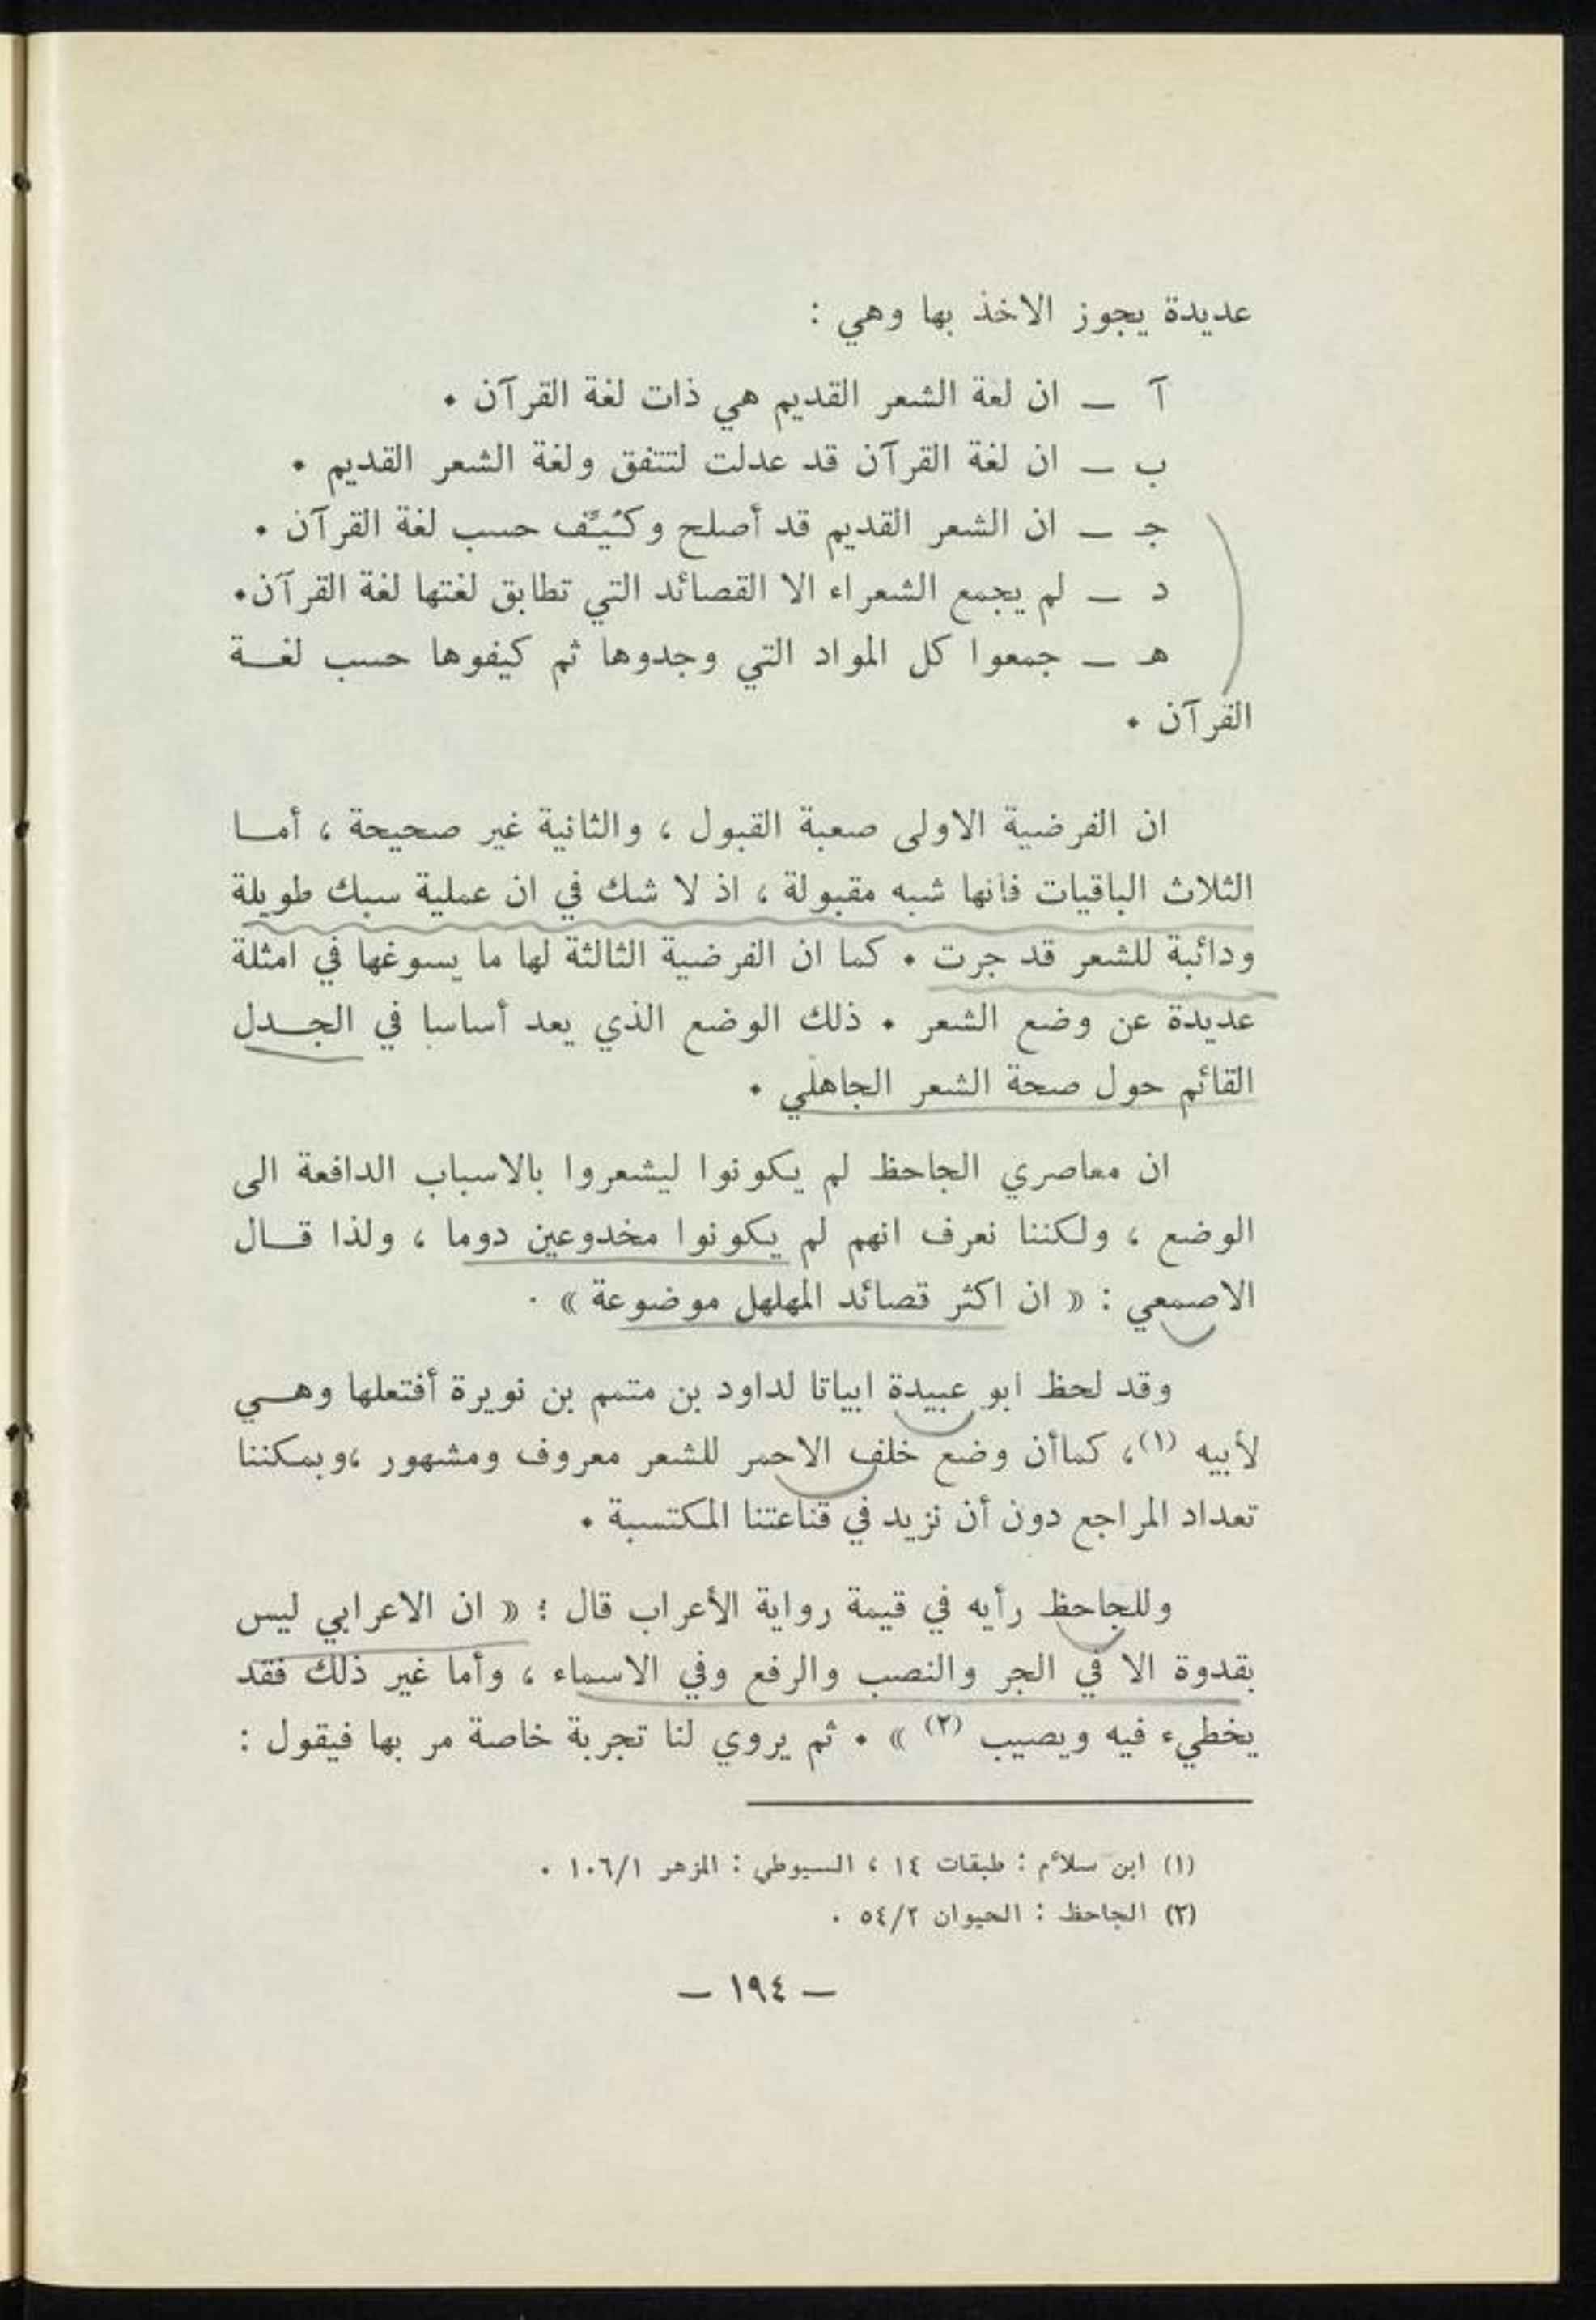 عديدة يجوز الاخذ بها وهي :
آ ــ ان لعة الشعر القديم هي ذات لغة القرآن .
ب ــ ان لغة القرآن قد عدلت لتتفق ولغة الشعر القديم .
جـ ــ ان الشعر القديم قد أصلح وكُيّف حسب لغة القرآن .
د ــ لم يجمع الشعراء الا القصائد التي تطابق لغتها لغة القرآن.
هـ ــ جمعوا كل المواد التي وجدوها ثم كيفوها حسب لغـة
القرآن .
ان الفرضية الاولى صعبة القبول ، والثانية غير صحيحة ، أمـا
الثلاث الباقيات فانها شبه مقبولة ، اذ لا شك في ان عملية سبك طويلة
ودائبة للشعر قد جرت . كما ان الفرضية الثالثة لها ما يسوغها في امثلة
عديدة عن وضع الشعر . ذلك الوضع الذي يعد أساسا في الجـدل
القائم حول صحة الشعر الجاهلي .
ان معاصري الجاحظ لم يكونوا ليشعروا بالاسباب الدافعة الى
الوضع ، ولكننا نعرف انهم لم يكونوا مخدوعين دوما ، ولذا قـال
الاصمعي : « ان اكثر قصائد المهلهل موضوعة » .
وقد لحظ ابو عبيدة ابياتا لداود بن متمم بن نويرة أفتعلها وهـي
لأبيه (١)، كماأن وضع خلف الاحمر للشعر معروف ومشهور ،ويمكننا
تعداد المراجع دون أن نزيد في قناعتنا المكتسبة .
وللجاحظ رأيه في قيمة رواية الأعراب قال : « ان الاعرابي ليس
بقدوة الا في الجر والنصب والرفع وفي الاسماء ، وأما غير ذلك فقد
يخطيء فيه ويصيب (٢) » . ثم يروي لنا تجربة خاصة مر بها فيقول :
(١) ابن سلاّم : طبقات ١٤ ، السيوطي : المزهر ١٠٦/١ .
(٢) الجاحظ : الحيوان ٥٤/٢ .
ــ ١٩٤ ــ